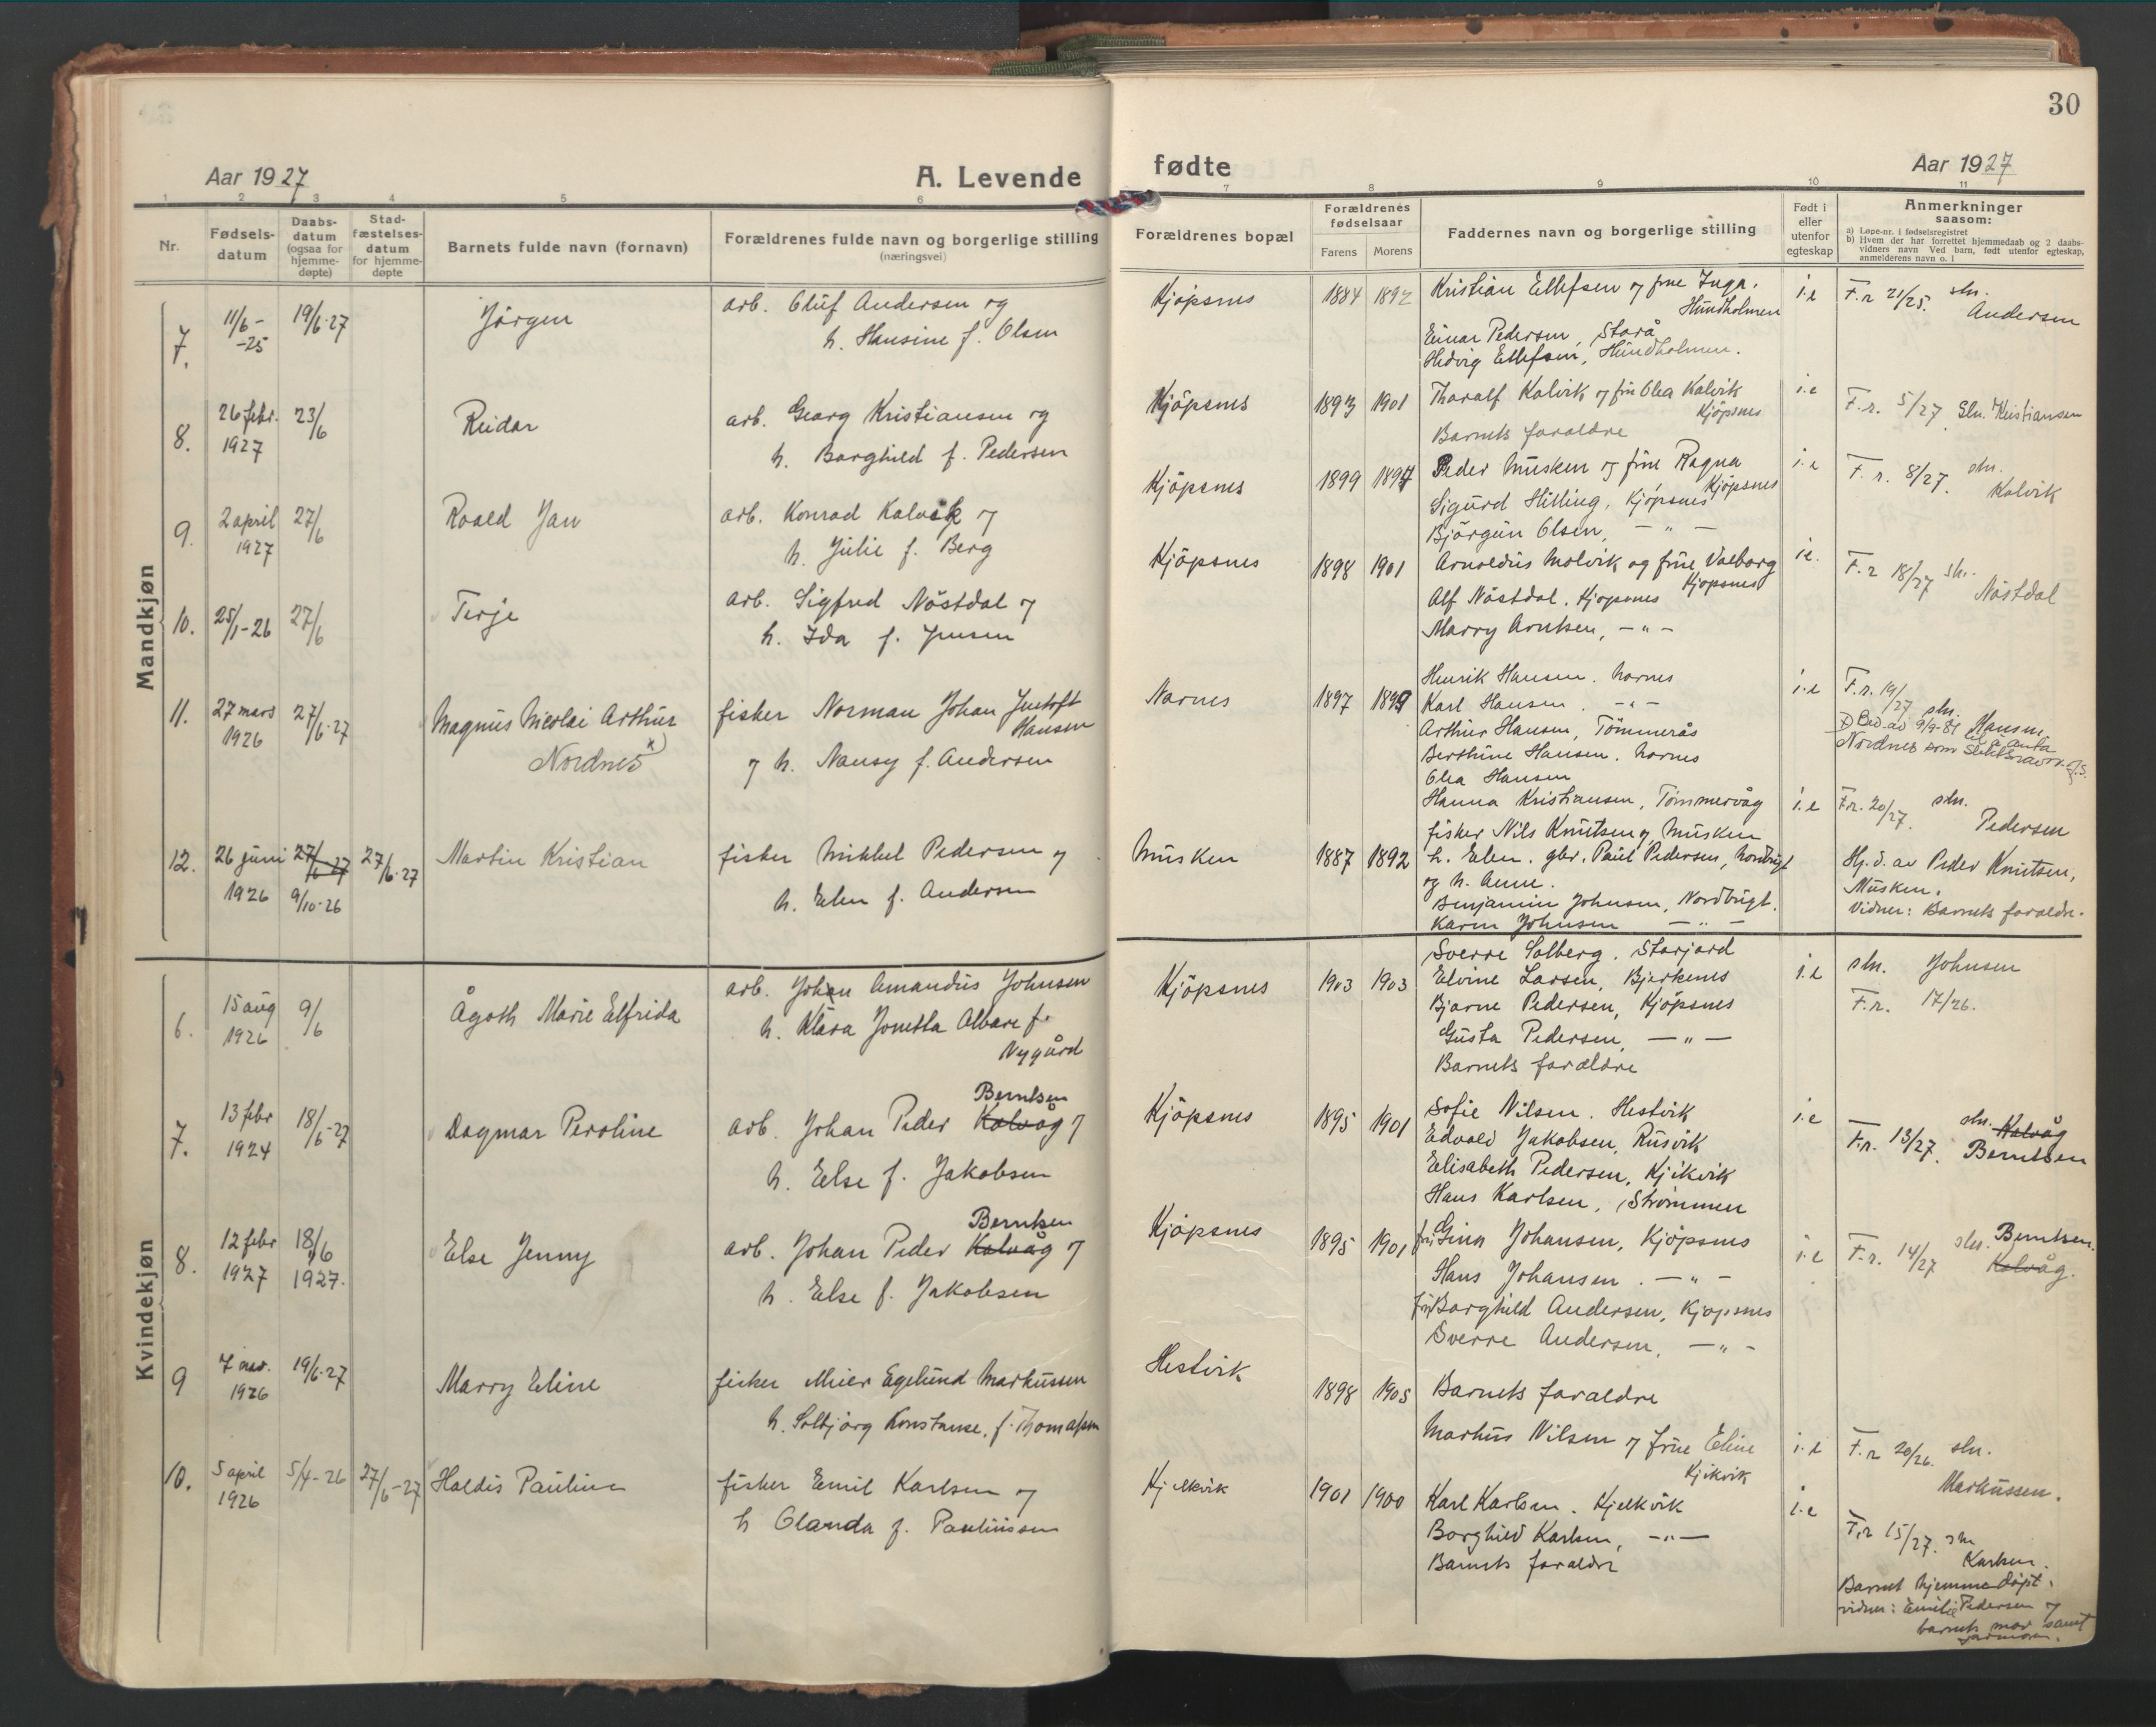 30
Aar 1927
A. Levende
fødte
Aar 1927
1 2 3 4 5 6
7 8 9 10 11
Nr.
Fødsels-
datum
Daabs-
datum
(ogsaa for
hjemme-
døpte)
Stad-
fæstelses-
datum
for hjemme-
døpte
Barnets fulde navn (fornavn)
Forældrenes fulde navn og borgerlige stilling
(næringsvei)
Forældrenes bopæl
Forældrenes
fødselsaar
Farens Morens
Faddernes navn og borgerlige stilling
Født i
eller
utenfor
egteskap
Anmerkninger
saasom:
a) Løpe-nr. i fødselsregistret
b) Hvem der har forrettet hjemmedaab og 2 daabs-
vidners navn Ved barn, født utenfor egteskap,
anmelderens navn o. l
Mandkjøn
7.
11/6 -
-25
19/6-27
Jörgen
arb. Oluf Andersen og
h. Hansine f. Olsen
Kjöpsnes
1884 1892
Kristian Ellefsen og frue Inga.
Hundholmen
Einar Pedersen, Storå
Hedvig Ellefsen, Hundholmen.
i.e
F.r 21/25. sln.
Andersen
8.
26 febr.
1927
23/6
Reidar
arb. Georg Kristiansen og
h. Borghild f. Pedersen
Kjöpsnes
1893 1901
Tharalf Kalvik og fru Olea Kalvik
Kjöpsnes
Barnets foraldre
i.e
F.r. 5/27 Sln. Kristiansen
9.
2 april
1927
27/6
Roald Jan
arb. Konrad Kalvik og
h. Julie f. Berg
Kjöpsnes
1899 1897
Peder Musken og frue Ragna
Kjöpsnes
Sigurd Hilling, Kjöpsnes
Björgun Olsen, — " —
i.e
F.r. 8/27. sln.
Kalvik
10.
25/1-26
27/6
Terje
arb. Sigfred Nöstdal og
h. Ida f. Jensen
Kjöpsnes
1898 1901
Arnoldus Molvik og frue Valborg
Kjöpsnes
Alf Nöstdal. Kjöpsnes
Marry Arntsen, — " —
i.e.
F.r 18/27 sln.
Nöstdal
11.
27 mars
1926
27/6-27
Magnus Nicolai Arthur
Nordnes x)
fisker Norman Johan Jentoft
Hansen
og h. Nansy f. Andersen
Narnes
1897 1899
Henrik Hansen. Narnes
Karl Hansen. — " —
Arthur Hansen, Tömmerås
Berthine Hansen. Narnes
Olea Hansen
Hanna Kristiansen, Tömmervåg
i.e
F.r. 19/27 sln.
Hansen
x) Bev. av 9/9-81 til å anta
Nordnes som slektsnavn.
12.
26 juni
1926
27/6-27
9/10-26
27/6-27
Martin Kristian
fisker Mikkel Pedersen og
h. Elen f. Andersen
Musken
1887 1892
fisker Nils Knutsen og, Musken
h. Elen. gbr. Paul Pedersen, Nordbugt
og h. Anne.
Benjamin Johnsen, Nordbugt.
Karen Johnsen — " —
i.e
F.r. 20/27. sln.
Pedersen
Hj.d. av Peder Knutsen,
Musken.
Vidner: Barnets foraldre.
Kvindekjøn
6.
15 aug
1926
9/6
Ågoth Marie Elfrida
arb. Johan Amandus Johnsen
h. Klara Jonetta Albare f.
Nygård
Kjöpsnes
1903 1903
Sverre Solberg. Storjord
Elvine Larsen, Bjerkenes
Bjarne Pedersen, Kjöpsnes
Gusta Pedersen, — " —
Barnets foraldre
i.e
sln. Johnsen
F.r. 17/26.
7.
13 febr
1924
18/6-27
Dagmar Peroline
Berntsen
arb. Johan Peder Kalvåg og
h. Else f. Jakobsen
Kjöpsnes
1895 1901
Sofie Nilsen. Hestvik
Edvald Jakobsen, Rusvik
Elisabeth Pedersen, Kjikvik
Hans Karlsen, Strömmen
i.e
F.r. 13/27. sln. Kalvåg
Berntsen
8.
12 febr
1927
18/6
1927.
Else Jenny
Berntsen
arb. Johan Peder Kalvåg og
h. Else f. Jakobsen
Kjöpsnes
1895 1901
fru Gina Johansen, Kjöpsnes
Hans Johansen. — " —
fru Borghild Andersen, Kjöpsnes
Sverre Andersen, — " —
i.e
F.r. 14/27 sln. Berntsen.
Kalvåg.
9
7 nov.
1926
19/6-27
Marry Eline
fisker Meier Egelund Markussen
h. Solbjörg Konstanse, f. Thomassen
Hestvik
1898 1905
Barnets foraldre
Markus Nilsen og frue Eline
Kjikvik
i.e
F.r 20/26. sln.
Markussen.
10.
5 april
1926
5/4-26
27/6-27
Haldis Pauline
fisker Emil Karlsen og
h Olanda f. Paulinssen
Kjelkvik
1901 1900
Karl Karlsen. Kjelkvik
Borghild Karlsen, — " —
Barnets foraldre
i.e
F.r 15/27. sln
Karlsen.
Barnet hjemmedöpt.
vidner: Emilie Pedersen og
barnets mor samt
farmoren.